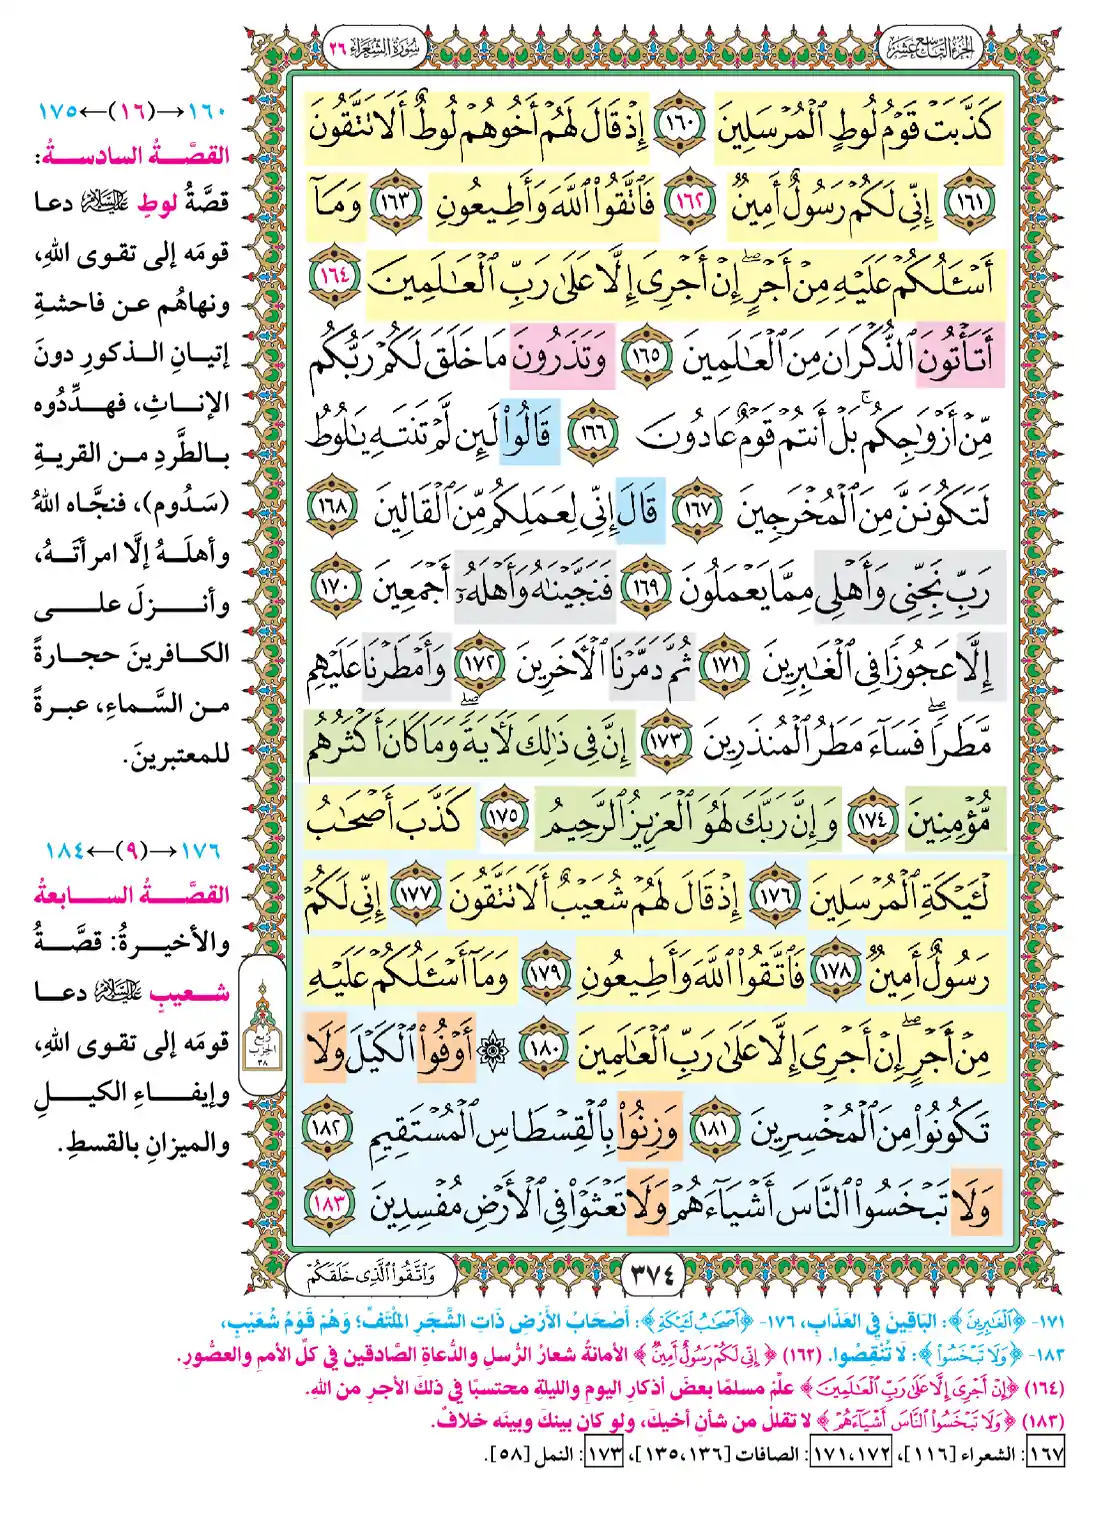 الجزء التاسع عشر
سورة الشعراء ٢٦
كَذَّبَتْ قَوْمُ لُوطٍ ٱلْمُرْسَلِينَ ١٦٠ إِذْ قَالَ لَهُمْ أَخُوهُمْ لُوطٌ أَلَا تَتَّقُونَ
١٦١ إِنِّي لَكُمْ رَسُولٌ أَمِينٌ ١٦٢ فَٱتَّقُوا۟ ٱللَّهَ وَأَطِيعُونِ ١٦٣ وَمَآ
أَسْـَٔلُكُمْ عَلَيْهِ مِنْ أَجْرٍ ۖ إِنْ أَجْرِىَ إِلَّا عَلَىٰ رَبِّ ٱلْعَـٰلَمِينَ ١٦٤
أَتَأْتُونَ ٱلذُّكْرَانَ مِنَ ٱلْعَـٰلَمِينَ ١٦٥ وَتَذَرُونَ مَا خَلَقَ لَكُمْ رَبُّكُم
مِّنْ أَزْوَٰجِكُم ۚ بَلْ أَنتُمْ قَوْمٌ عَادُونَ ١٦٦ قَالُوا۟ لَئِن لَّمْ تَنتَهِ يَـٰلُوطُ
لَتَكُونَنَّ مِنَ ٱلْمُخْرَجِينَ ١٦٧ قَالَ إِنِّى لِعَمَلِكُم مِّنَ ٱلْقَالِينَ ١٦٨
رَبِّ نَجِّنِى وَأَهْلِى مِمَّا يَعْمَلُونَ ١٦٩ فَنَجَّيْنَـٰهُ وَأَهْلَهُۥٓ أَجْمَعِينَ ١٧٠
إِلَّا عَجُوزًا فِى ٱلْغَـٰبِرِينَ ١٧١ ثُمَّ دَمَّرْنَا ٱلْـَٔاخَرِينَ ١٧٢ وَأَمْطَرْنَا عَلَيْهِم
مَّطَرًا ۖ فَسَآءَ مَطَرُ ٱلْمُنذَرِينَ ١٧٣ إِنَّ فِى ذَٰلِكَ لَـَٔايَةً ۖ وَمَا كَانَ أَكْثَرُهُم
مُّؤْمِنِينَ ١٧٤ وَإِنَّ رَبَّكَ لَهُوَ ٱلْعَزِيزُ ٱلرَّحِيمُ ١٧٥ كَذَّبَ أَصْحَـٰبُ
لْـَٔيْكَةِ ٱلْمُرْسَلِينَ ١٧٦ إِذْ قَالَ لَهُمْ شُعَيْبٌ أَلَا تَتَّقُونَ ١٧٧ إِنِّى لَكُمْ
رَسُولٌ أَمِينٌ ١٧٨ فَٱتَّقُوا۟ ٱللَّهَ وَأَطِيعُونِ ١٧٩ وَمَآ أَسْـَٔلُكُمْ عَلَيْهِ
مِنْ أَجْرٍ ۖ إِنْ أَجْرِىَ إِلَّا عَلَىٰ رَبِّ ٱلْعَـٰلَمِينَ ١٨٠ ۞ أَوْفُوا۟ ٱلْكَيْلَ وَلَا
تَكُونُوا۟ مِنَ ٱلْمُخْسِرِينَ ١٨١ وَزِنُوا۟ بِٱلْقِسْطَاسِ ٱلْمُسْتَقِيمِ ١٨٢
وَلَا تَبْخَسُوا۟ ٱلنَّاسَ أَشْيَآءَهُمْ وَلَا تَعْثَوْا۟ فِى ٱلْأَرْضِ مُفْسِدِينَ ١٨٣
٣٧٤
وَٱتَّقُوا۟ ٱلَّذِى خَلَقَكُمْ
١٦٠→(١٦)←١٧٥
القصَّةُ السادسةُ:
قصَّةُ لوطٍ عليه السلام دعا
قومَه إلى تقوى اللهِ،
ونهاهُم عن فاحشةِ
إتيانِ الذكورِ دونَ
الإناثِ، فهدِّدُوه
بالطَّردِ من القريةِ
(سَدُوم)، فنجَّاه اللهُ
وأهلَهُ إلَّا امرأتَهُ،
وأنزلَ على
الكافرينَ حجارةً
من السَّماءِ، عبرةً
للمعتبرينَ.
١٧٦→(٩)←١٨٤
القصَّةُ السابعةُ
والأخيرةُ: قصَّةُ
شعيبٍ عليه السلام دعا
قومَه إلى تقوى اللهِ،
وإيفاءِ الكيلِ
والميزانِ بالقسطِ.
ربع
الحزب
٣٨
١٧١- ﴿ٱلْغَـٰبِرِينَ﴾: البَاقِينَ فِي العَذَابِ، ١٧٦- ﴿أَصْحَـٰبُ لْـَٔيْكَةِ﴾: أَصْحَابُ الأَرْضِ ذَاتِ الشَّجَرِ المُلْتَفِّ؛ وَهُمْ قَوْمُ شُعَيْبٍ،
١٨٣- ﴿وَلَا تَبْخَسُوا۟﴾: لَا تُنْقِصُوا. (١٦٢) ﴿إِنِّى لَكُمْ رَسُولٌ أَمِينٌ﴾ الأمانةُ شعارُ الرُّسلِ والدُّعاةِ الصَّادقين في كلِّ الأممِ والعصُورِ.
(١٦٤) ﴿إِنْ أَجْرِىَ إِلَّا عَلَىٰ رَبِّ ٱلْعَـٰلَمِينَ﴾ علِّمْ مسلمًا بعضَ أذكارِ اليومِ والليلةِ محتسبًا في ذلكَ الأجرِ من اللهِ.
(١٨٣) ﴿وَلَا تَبْخَسُوا۟ ٱلنَّاسَ أَشْيَآءَهُمْ﴾ لا تقللْ من شأنِ أخيكَ، ولو كان بينكَ وبينَه خلافٌ.
١٦٧: الشعراء [١١٦]، ١٧١،١٧٢: الصافات [١٣٥،١٣٦]، ١٧٣: النمل [٥٨].